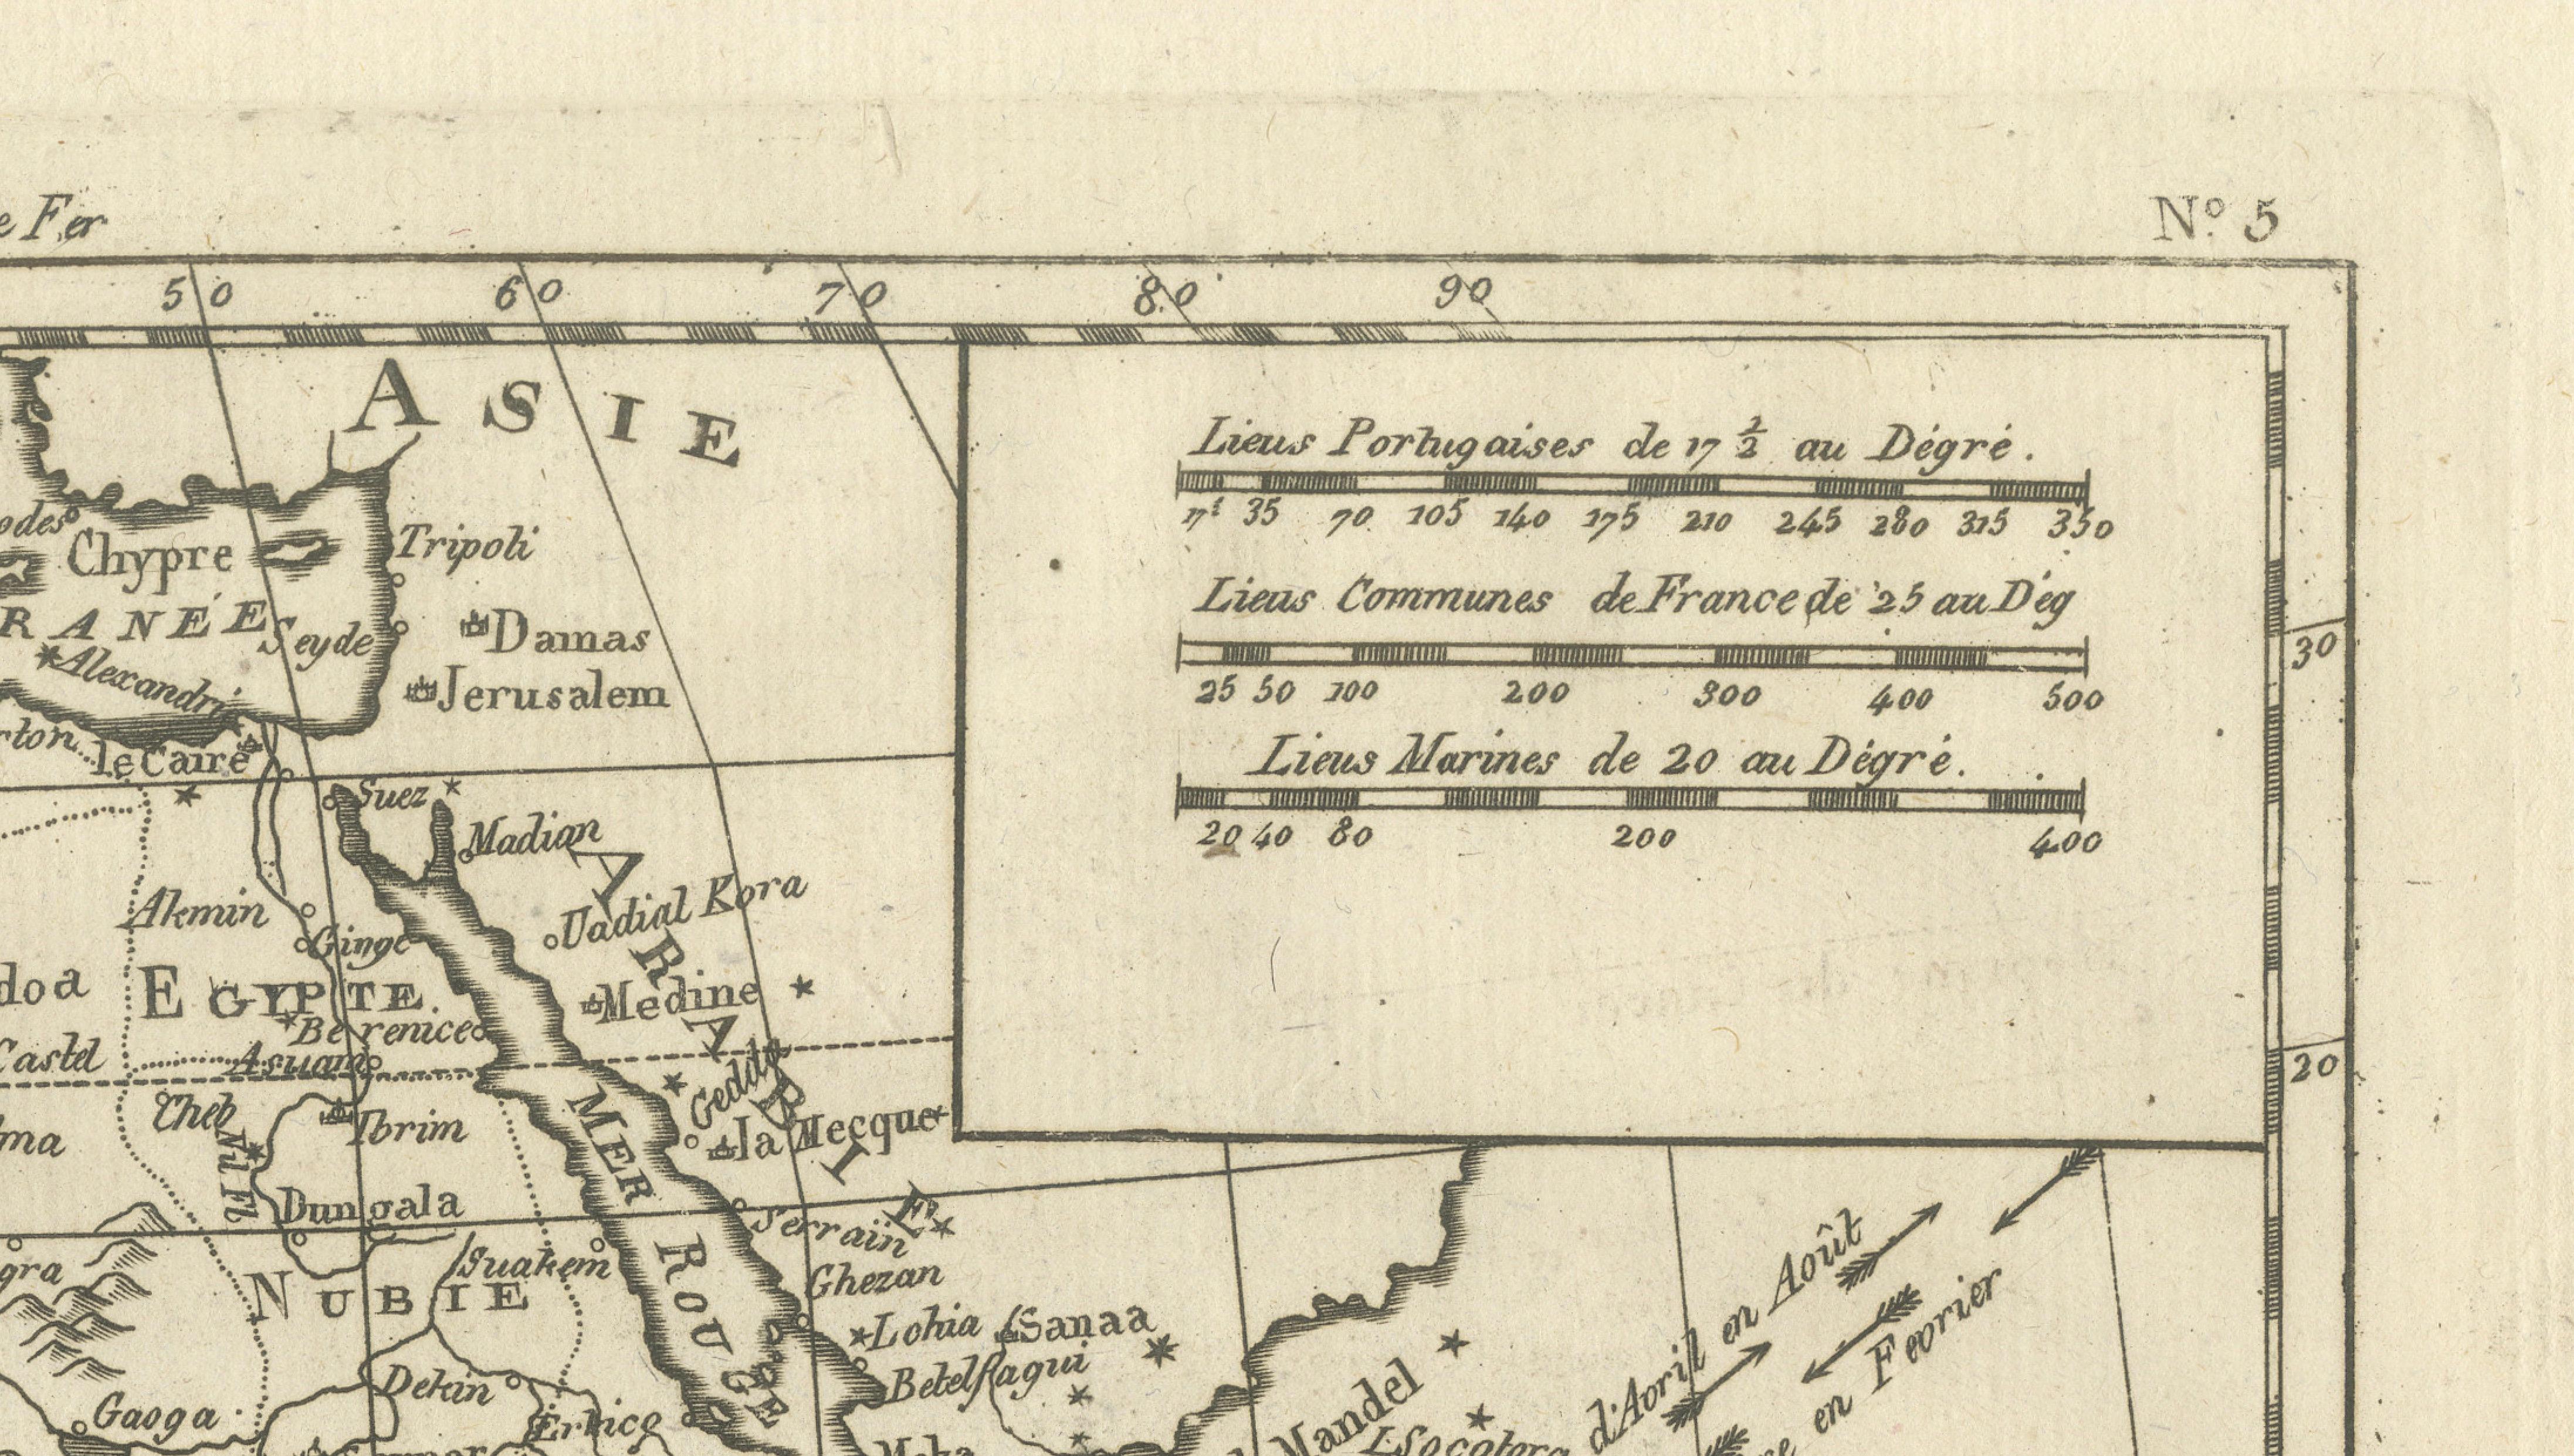 e Fer
Nº 5
50 60 70 80 90
ASIE
Lieus Portugaises de 17 1/2 au Dégré.
35 70 105 140 175 210 245 280 315 350
Chypre
Tripoli
Lieus Communes de France de 25 au Dég
25 50 100 200 300 400 500
RANÉE
Seyde
Damas
30
Alexandri
Jerusalem
le Caire
Lieus Marines de 20 au Dégré.
20 40 80 200 400
Suez
Madian
ARABIE
Akmin
Vadial Kora
Ginge
doa
EGYPTE.
Medine
Berenice
Castel
Asuam
20
Gedda
Cheb
Ibrim
la Mecque
ma
Nil Fl
MER ROUGE
Dungala
Serraïn
gra
NUBIE
Suakem
Ghezan
d'Avril en Août
Lohia
Sanaa
en Fevrier
Dekin
Betelfagui
Gaoga
Erkico
Mandel
I Socotora